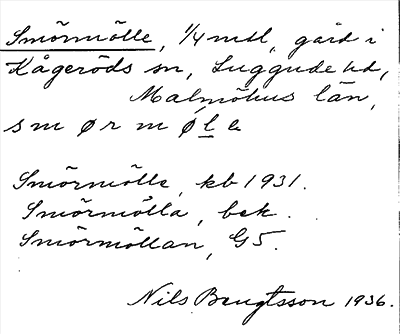 Smörmölle, 1/4 mtl, gård i
Kågeröds sn, Luggude hd,
Malmöhus län,
smørmǿle
Smörmölle, kb 1931.
Smörmölla, bek.
Smörmöllan, G5.
Nils Bengtsson 1936.